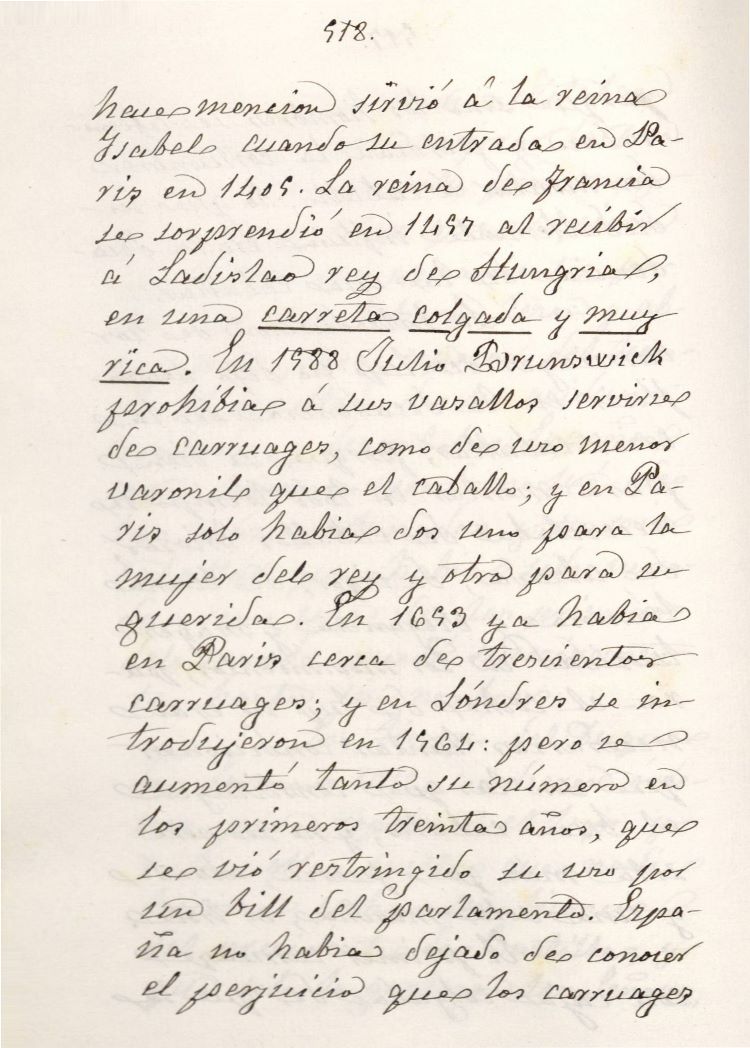 518.
hace mencion sirvió á la reina
Isabel cuando su entrada en Pa-
ris en 1405. La reina de Francia
se sorprendió en 1457 al recibir
á Ladislao rey de Hungria,
en una carreta colgada y muy
rica. En 1588 Julio Brunswick
prohibia á sus vasallos servirse
de carruages, como de uso menor
varonil que el caballo; y en Pa-
ris solo habia dos uno para la
mujer del rey y otro para su
querida. En 1653 ya habia
en Paris cerca de trescientos
carruages; y en Lóndres se in-
trodujeron en 1564: pero se
aumentó tanto su número en
los primeros treinta años, que
se vió restringido su uso por
un bill del parlamento. Espa-
ña no habia dejado de conocer
el perjuicio que los carruages